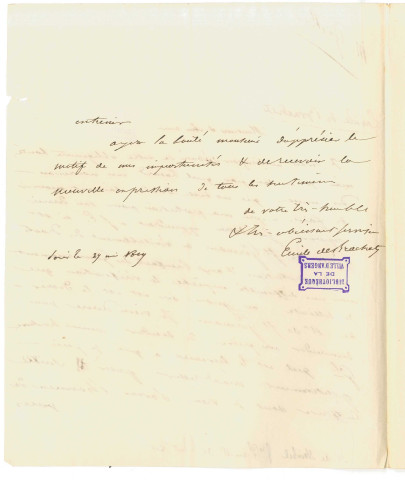 entretenir
ayez la bonté monsieur d'apprécier le
motif de mes importunités & de recevoir la
nouvelle expression de tous les sentimens
de votre très-humble
& très-obéissant servit
Emile de
Paris le 29 1819
BIBLIOTHÈQUE
DE LA
VILLE D'ANGERS